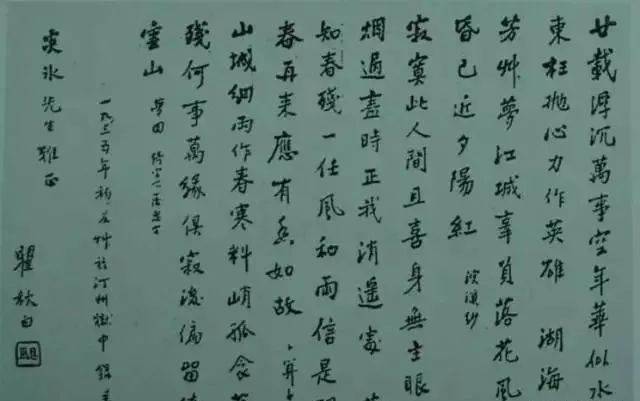 廿載浮沉萬事空年華似水
東枉拋心力作英雄 湖海
芳艸夢江城辜負落花風
昏已近夕陽紅 浣溪紗
寂寞此人間且喜身無主眼
烟過盡時正我消遙處
知春殘一任風和雨信是
春再來應有香如故 卜算
山城細雨作春寒料峭孤衾
殘何事萬緣俱寂後偏留
靈山 夢回
一九三五年初夏艸於汀州獄中 錄
冰先生雅正
瞿秋白